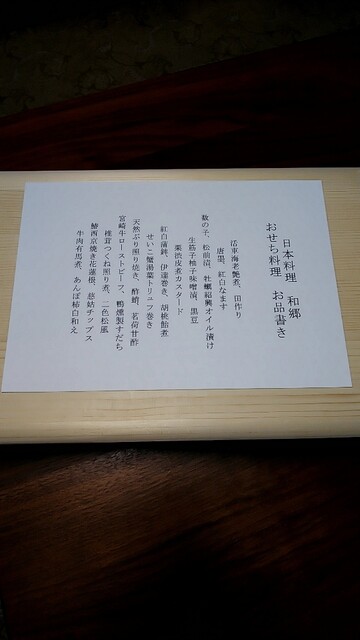 日本料理 和郷
おせち料理 お品書き
活車海老艶煮、田作り
唐墨、紅白なます
数の子、松前漬、牡蠣紹興オイル漬け
生筋子柚子味噌漬、黒豆
栗渋皮煮カスタード
紅白蒲鉾、伊達巻き、胡桃飴煮
せいこ蟹湯葉トリュフ巻き
天然ぶり照り焼き、酢蛸、茗荷甘酢
宮崎牛ローストビーフ、鴨燻製すだち
椎茸つくね照り煮、二色松風
鰆西京焼き花蓮根、慈姑チップス
牛肉有馬煮、あんぽ柿白和え